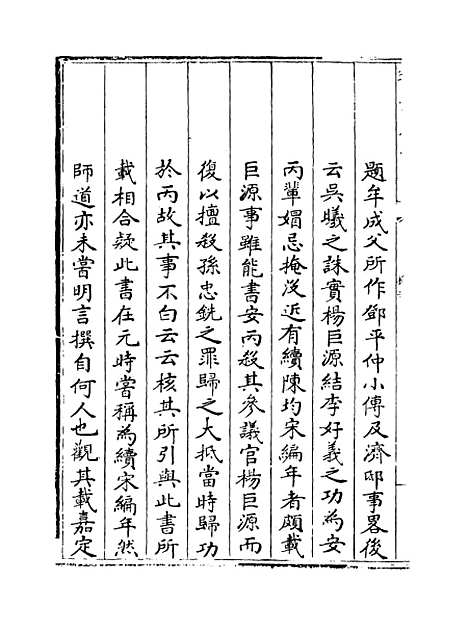 題牟成父所作鄧平仲小傳及濟邸事畧後
云吳曦之誅實楊巨源結李好義之功為安
丙輩媢忌掩沒近有續陳均宋編年者頗載
巨源事雖能書安丙殺其參議官楊巨源而
復以擅殺孫忠銑之罪歸之大抵當時歸功
於丙故其事不白云云核其所引與此書所
載相合疑此書在元時嘗稱為續宋編年然
師道亦未嘗明言撰自何人也觀其載嘉定